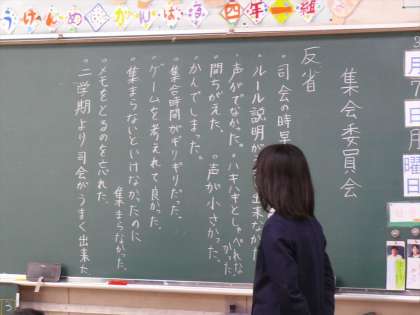 うけんめがんばる四年一組
集会委員会
反省
・司会の時早
・ルール説明が 出来なかっ
声がでなかった。・ハキハキとしゃべれなかった。
・間ちがえた。・声が小さかった。
・かんでしまった。
・集合時間がギリギリだった。
・ゲームを考えれて良かった。
・集まらないといけなかったのに集まらなかった。
・メモをとるのを忘れた。
・二学期より司会がうまく出来た。
月
7
日
月
曜
日